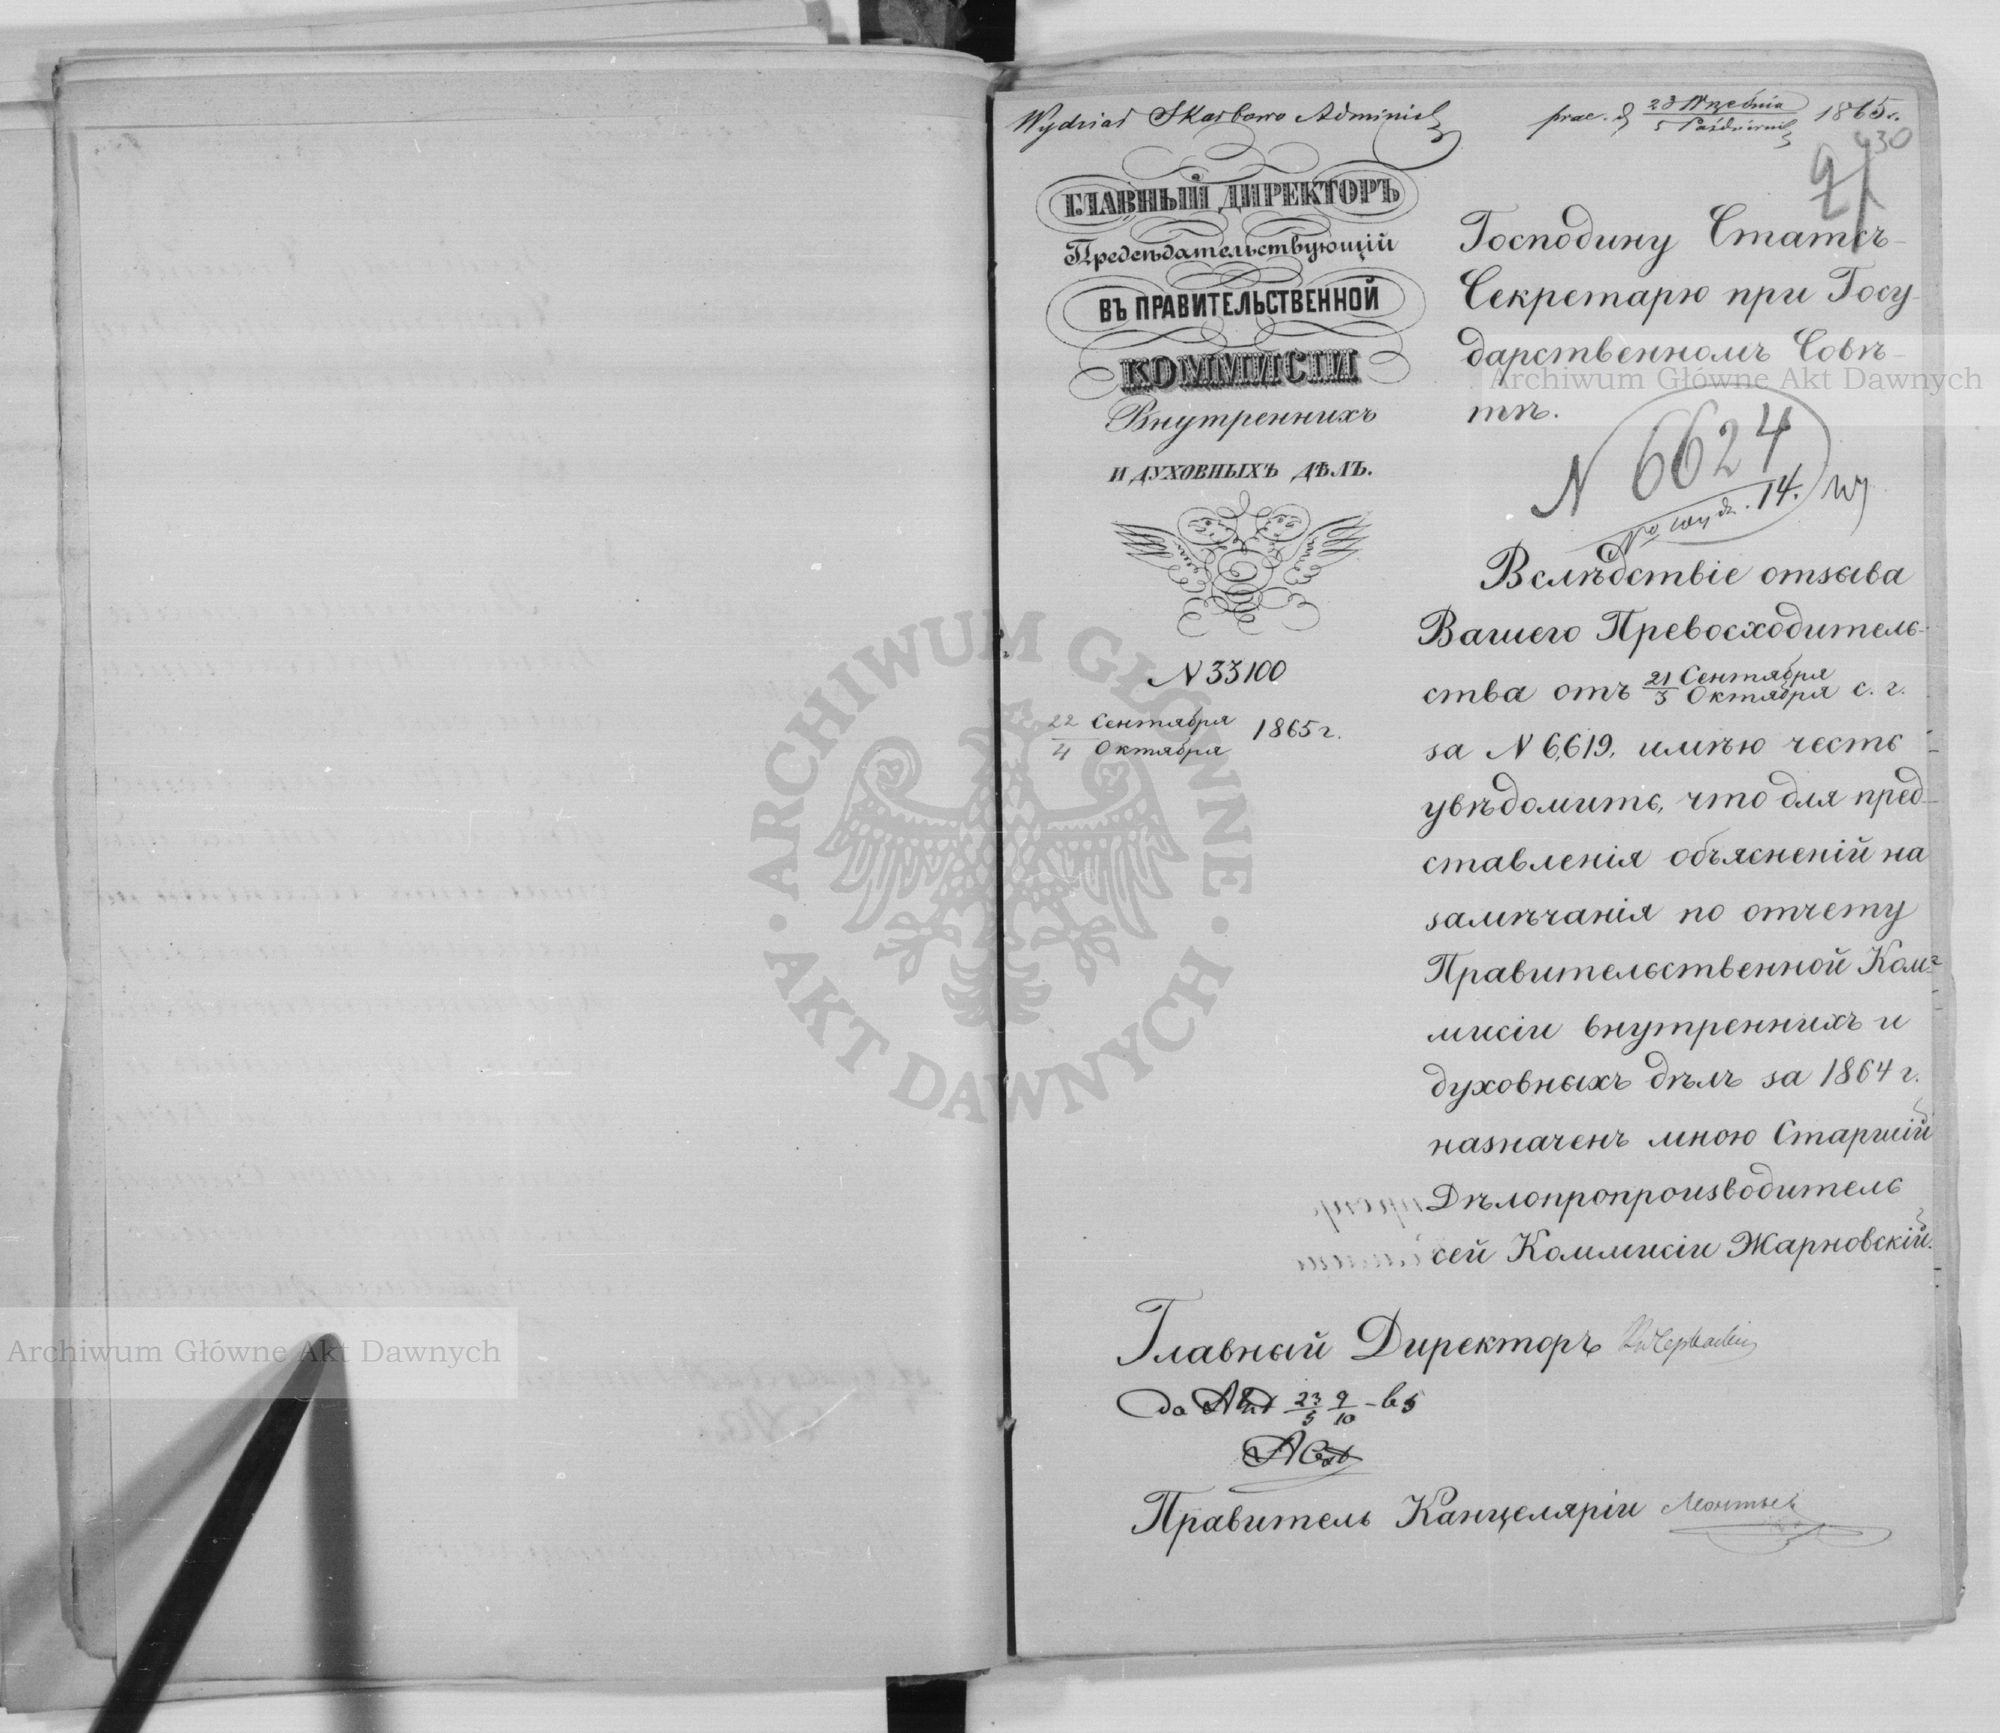 Wydział Skarbowo Administ
prae. d 23 Września / 5 Październik 1865 r.
430
ГЛАВНЫЙ ДИРЕКТОРЪ
Предсѣдательствующій
ВЪ ПРАВИТЕЛЬСТВЕННОЙ
КОММИСІИ
Внутреннихъ
И ДУХОВНЫХЪ ДѢЛЪ.
N 33100
22 Сентября / 4 Октября 1865 г.
Господину Статсъ-
Секретарю при Госу-
дарственномъ Совѣ-
тѣ.
N 6624
No wydz. 14.
Вслѣдствіе отзыва
Вашего Превосходитель-
ства отъ 21 Сентября / 3 Октября с. г.
за N 6,619, имѣю честь
увѣдомить, что для пред-
ставленія объясненій на
замѣчанія по отчету
Правительственной Ком-
мисіи внутреннихъ и
духовныхъ дѣлъ за 1864 г.
назначенъ мною Старшій
Дѣлопропроизводитель
сей Коммисіи Жарновскій.
Главный Директоръ
да 23/5 9/10
Правитель Канцеляріи
Archiwum Główne Akt Dawnych
Archiwum Główne Akt Dawnych
ARCHIWUM GŁÓWNE · AKT DAWNYCH ·